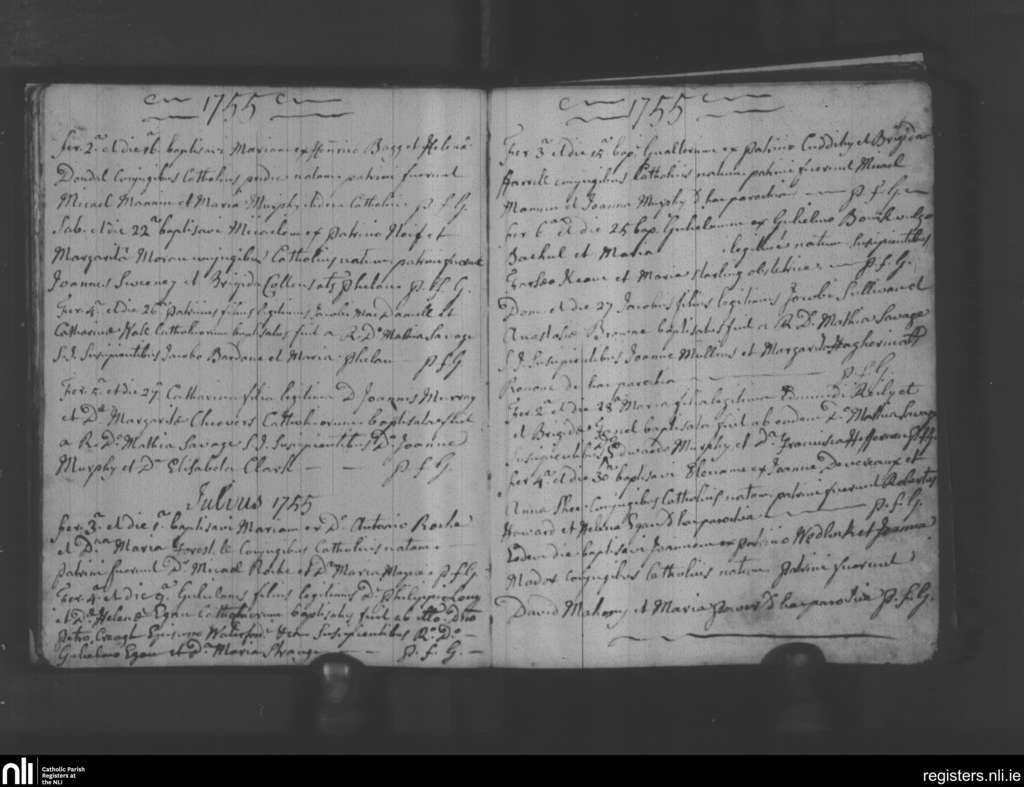 1755
fer. 2ª et die 16ª baptisavi Mariam ex Henrico Bagg et Helena
Dondal Conjugibus Catholicis pridie natam patrini fuerunt
Micael Mannin et Maria Murphy Catholici P. f. G.
Sab. et die 22ª baptisavi Micaelem ex Patricio Neif et
Margarita Moran conjugibus Catholicis natum, patrini fuerunt
Joannes Sweeney et Brigida Phelane P. f. G.
Fer. 4ª et die 26ª Patricius filius legitimus Jacobi et
Catharinae Hale Catholicorum baptisatus fuit a R. Dº Mathia Savage
S.J. Suscipientibus Jacobo Bardane et Maria Phelan P. f. G.
Fer. 5ª et die 27ª Catharina filia legitima D. Joannis Murray
et Dæ Margaritæ Cheevers Catholicorum baptisata fuit
a R. Dº Mathia Savage S.J. Suscipientibus Dº Joanne
Murphy et Dª Elisabetha Clark P. f. G.
Julius 1755
fer. 3ª et die 1ª baptisavi Mariam ex Dº Antonio Roche
et Dª Maria Forestle Conjugibus Catholicis natam
Patrini fuerunt Dº Micael Roche et Dª Maria P. f. G.
Fer. 4ª et die 9ª Gulielmus filius legitimus D. Philippi Long
et Dæ Helenæ Egan Catholicorum baptisatus fuit ab Illº Dño
Petro Creagh Episcopo Suscipientibus R. Dº
Gulielmo Egan et Dª Maria Strange P. f. G.
1755
Fer. 3ª et die 15ª bap. Gualterum ex Patricio Cuddihy et Brigida
Farrell conjugibus Catholicis natum patrini fuerunt Micael
Mannin et Joanna Murphy hac parochia P. f. G.
fer. 6ª et die 25 bap. Gulielmum ex Gulielmo vulgo
Bachul et Maria legitime natum Suscipientibus
Keane et Maria Starling obstetrice P. f. G.
Dom. et die 27 Jacobus filius legitimus Jacobi Sullivan et
Anastasiæ Browne baptisatus fuit a R. D. Mathia Savage
S.J. Suscipientibus Joanne Mullins et Margarita
Ronane de hac parochia P. f. G.
Fer. 2ª et die 28ª Maria filia legitima Edmundi Reily et
et Brigidæ baptisata fuit ab eodem Dº Mathia Savage
Suscipientibus Edwardo Murphy et Dª Francisca Heffernan P. f. G.
fer. 4ª et die 30 baptisavi Elenam ex Joanne Devereaux et
Anna Shee Conjugibus Catholicis natam, patrini fuerunt Robertus
Howard et Helena Egan hac parochia P. f. G.
Eodem die baptisavi Joannem ex Patricio Wedlock et Joanna
Mador conjugibus Catholicis natum patrini fuerunt
David Mahony et Maria Power hac parochia P. f. G.
nli
Catholic Parish
Registers at
the NLI
registers.nli.ie